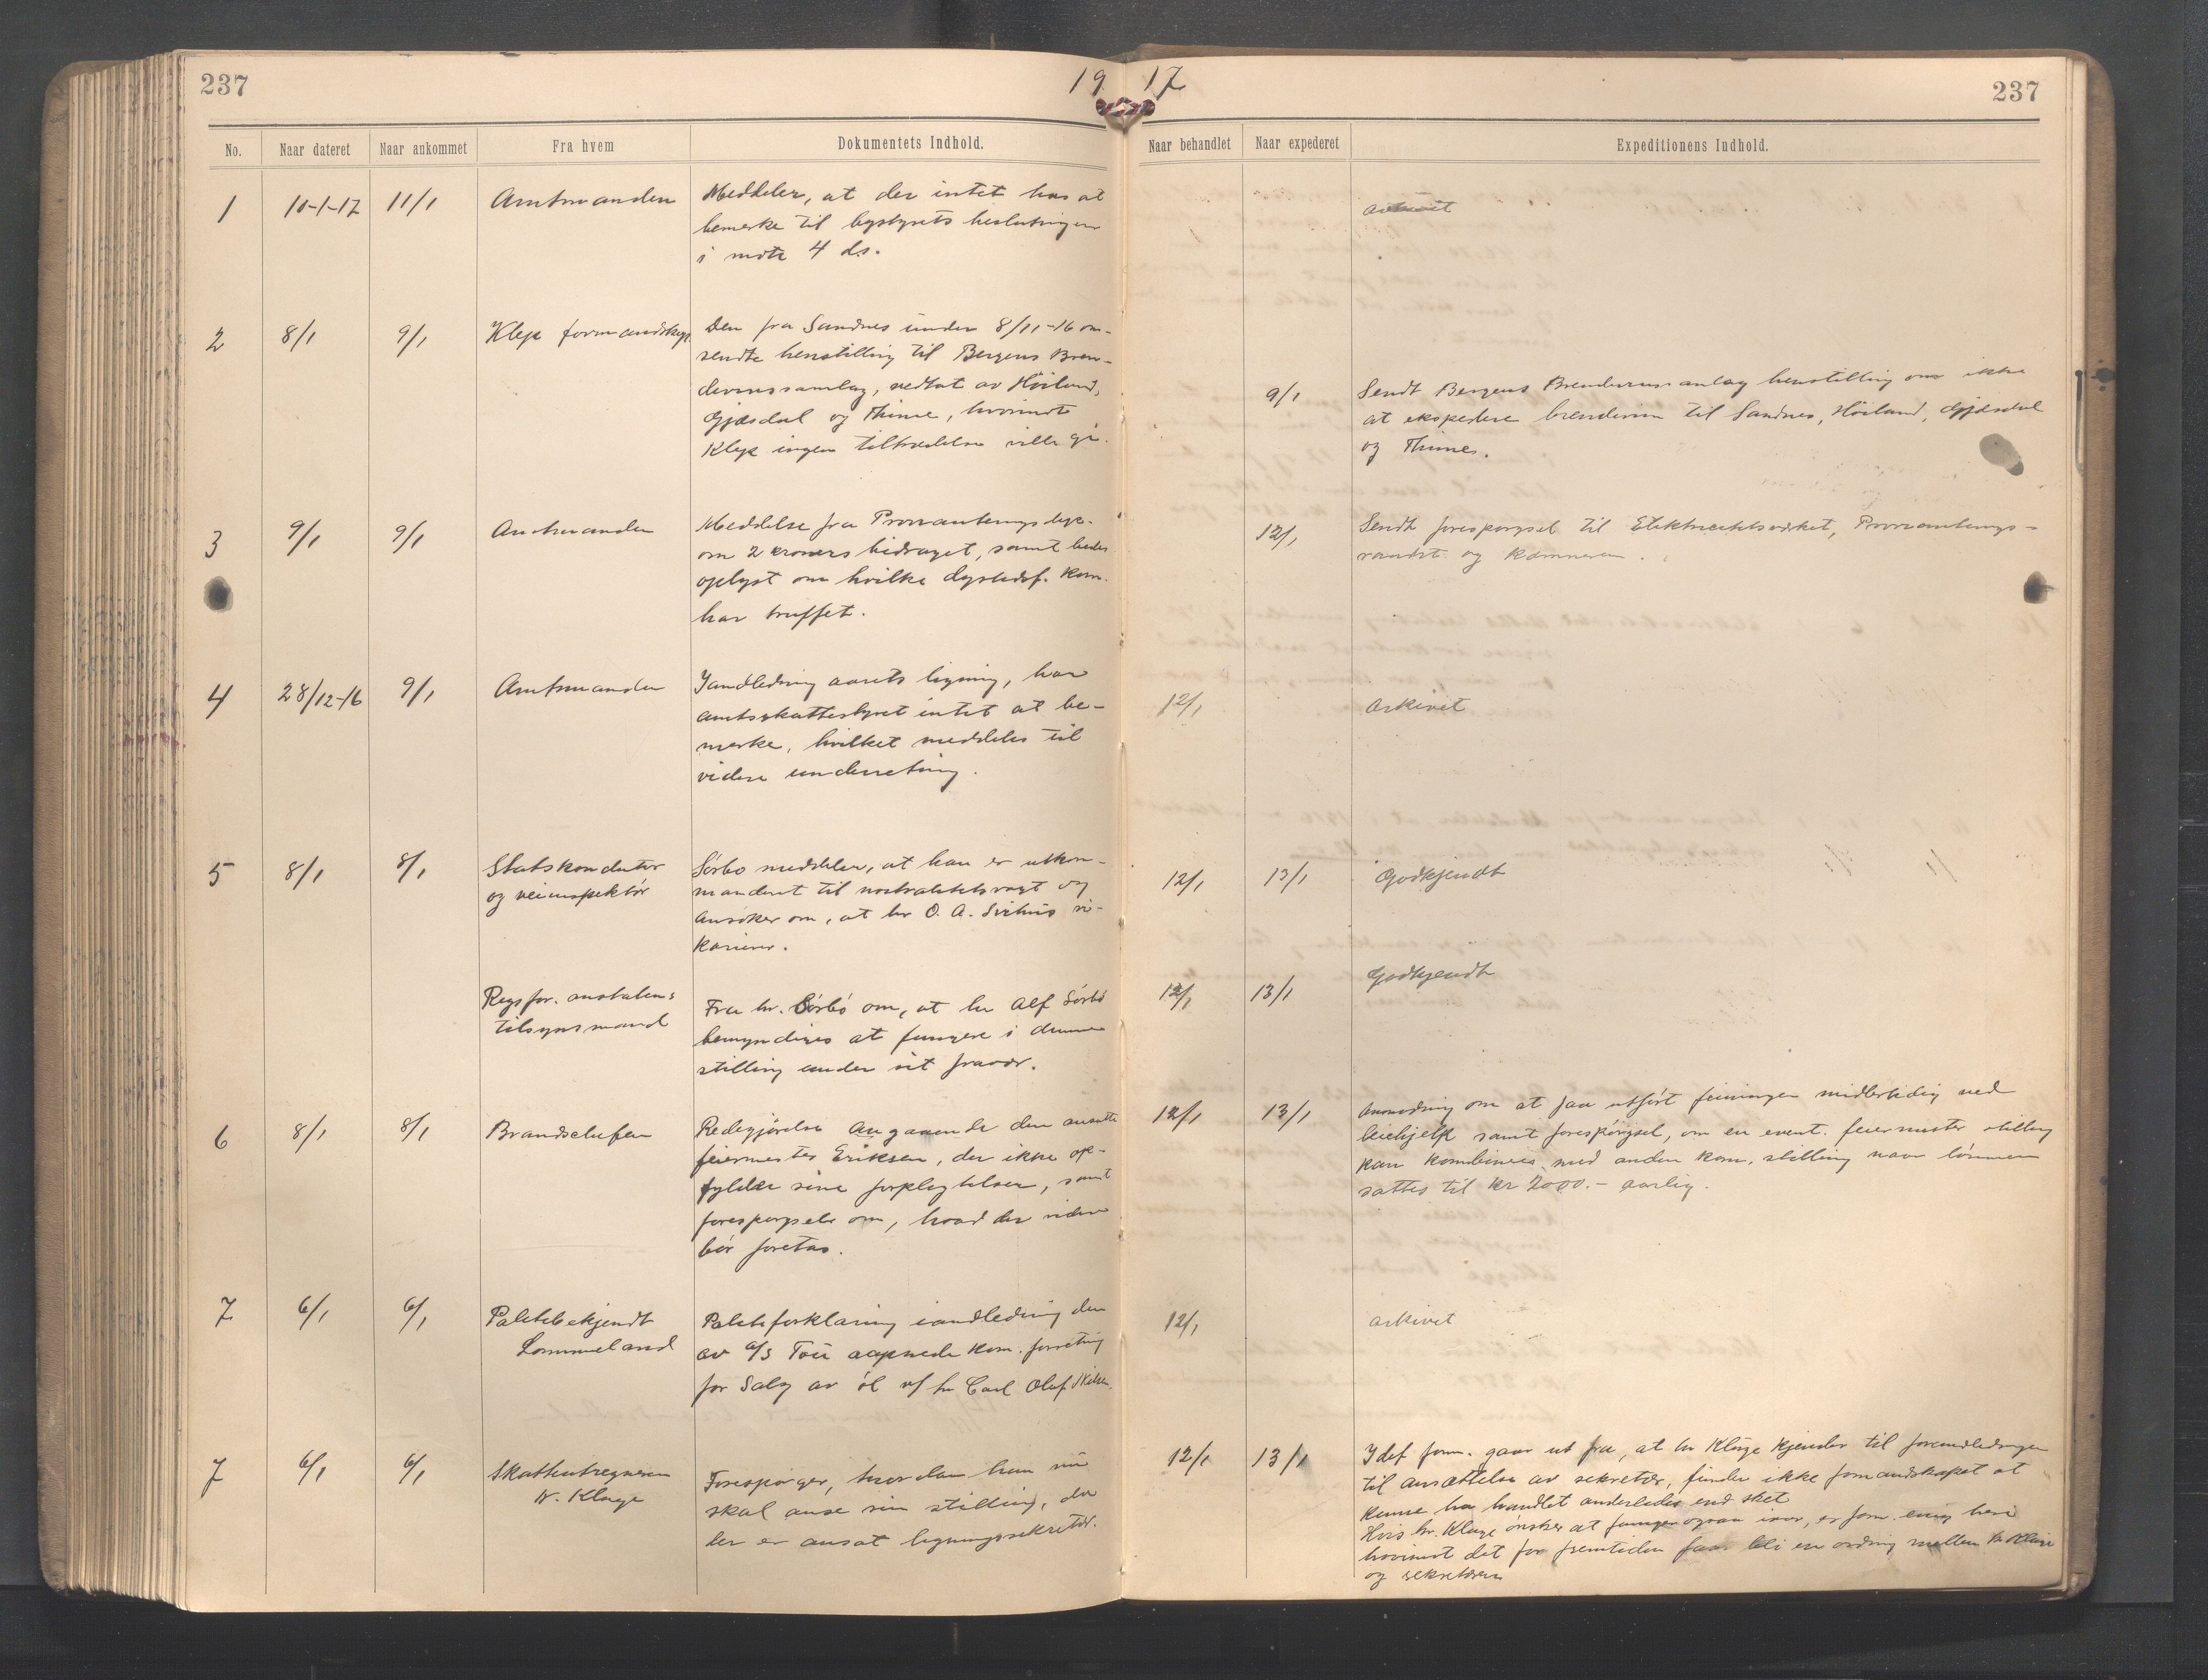 237
19 17
237
No.
Naar dateret
Naar ankommet
Fra hvem
Dokumentets Indhold.
Naar behandlet
Naar expederet
Expeditionens Indhold.
1
10-1-17
11/1
Amtmanden
Meddeler, at der intet has at
bemerke til bystyrets beslutninger
i møte 4 ds.
arkivet
2
8/1
9/1
Klep formandskap
Den fra Sandnes under 8/11-16 om-
sendte henstilling til Bergens Bren-
devinssamlag, vedtat av Höiland,
Gjæsdal og Thime, hvorimot
Klep ingen tiltrædelse ville gi.
9/1
Sendt Bergens Brendevinssamlag henstilling om ikke
at ekspedere brendevin til Sandnes, Höiland, Gjæsdal
og Thime.
3
9/1
9/1
Amtmanden
Meddelse fra Provianterings dep.
om 2 kroners bidraget, samt bedes
oplyst om hvilke dyrtidsf. kom.
har truffet.
12/1
Sendt forespørgsel til Elektricitetsverket, Provianterings-
raadet og Kæmneren.
4
28/12-16
9/1
Amtmanden
I andledning aarets ligning, har
amtsskattestyret intet at be-
merke, hvilket meddeles til
videre underretning.
12/1
Arkivet
5
8/1
8/1
Stadskonduktør
og veiinspektör
Sörbo meddeler, at han er utkom-
manderet til nøitralitetsvagt og
ansöker om, at hr O. A.
karierer.
12/1
13/1
Godkjendt
tilsynsmand
Fra hr. Sörbö om, at hr Alf Sörbö
bemyndiges at fungere i denne
stilling under sit fravær.
12/1
13/1
Godkjendt
6
8/1
8/1
Brandchefen
Redegjörelse angaaende den ansatte
feiermester Eriksen, der ikke op-
fylder sine forpligtelser, samt
forespørgsel om, hvad der videre
bör foretas.
12/1
13/1
Anmodning om at faa utfört feiningen midlertidig ved
leiehjelp samt forespörgsel, om en event. feiermester stilling
kan kombineres med anden kom. stilling naar lönnen
sættes til kr 2000.- aarlig.
7
6/1
6/1
Politibetjendt
Lommeland
Politiforklaring iandledning den
av A/S Tou aapnede kom. forretning
for Salg av öl v/ hr Carl Olaf
12/1
arkivet
7
6/1
6/1
Skatteutregneren
W. Kluge
Forespørger, hvordan han nu
skal anse sin stilling, da
der er ansat ligningssekretær.
12/1
13/1
Idet form. gaar ut fra, at hr Kluge kjender til foranledningen
til ansættelse av sekretær, finder ikke formandskapet at
kunne ha handlet anderledes end sket
Hvis hr. Kluge ønsker at fungere ogsaa iaar, er form. enig heri
hvorimot det for fremtiden faar bli en ordning mellem hr Kluge
og sekretæren